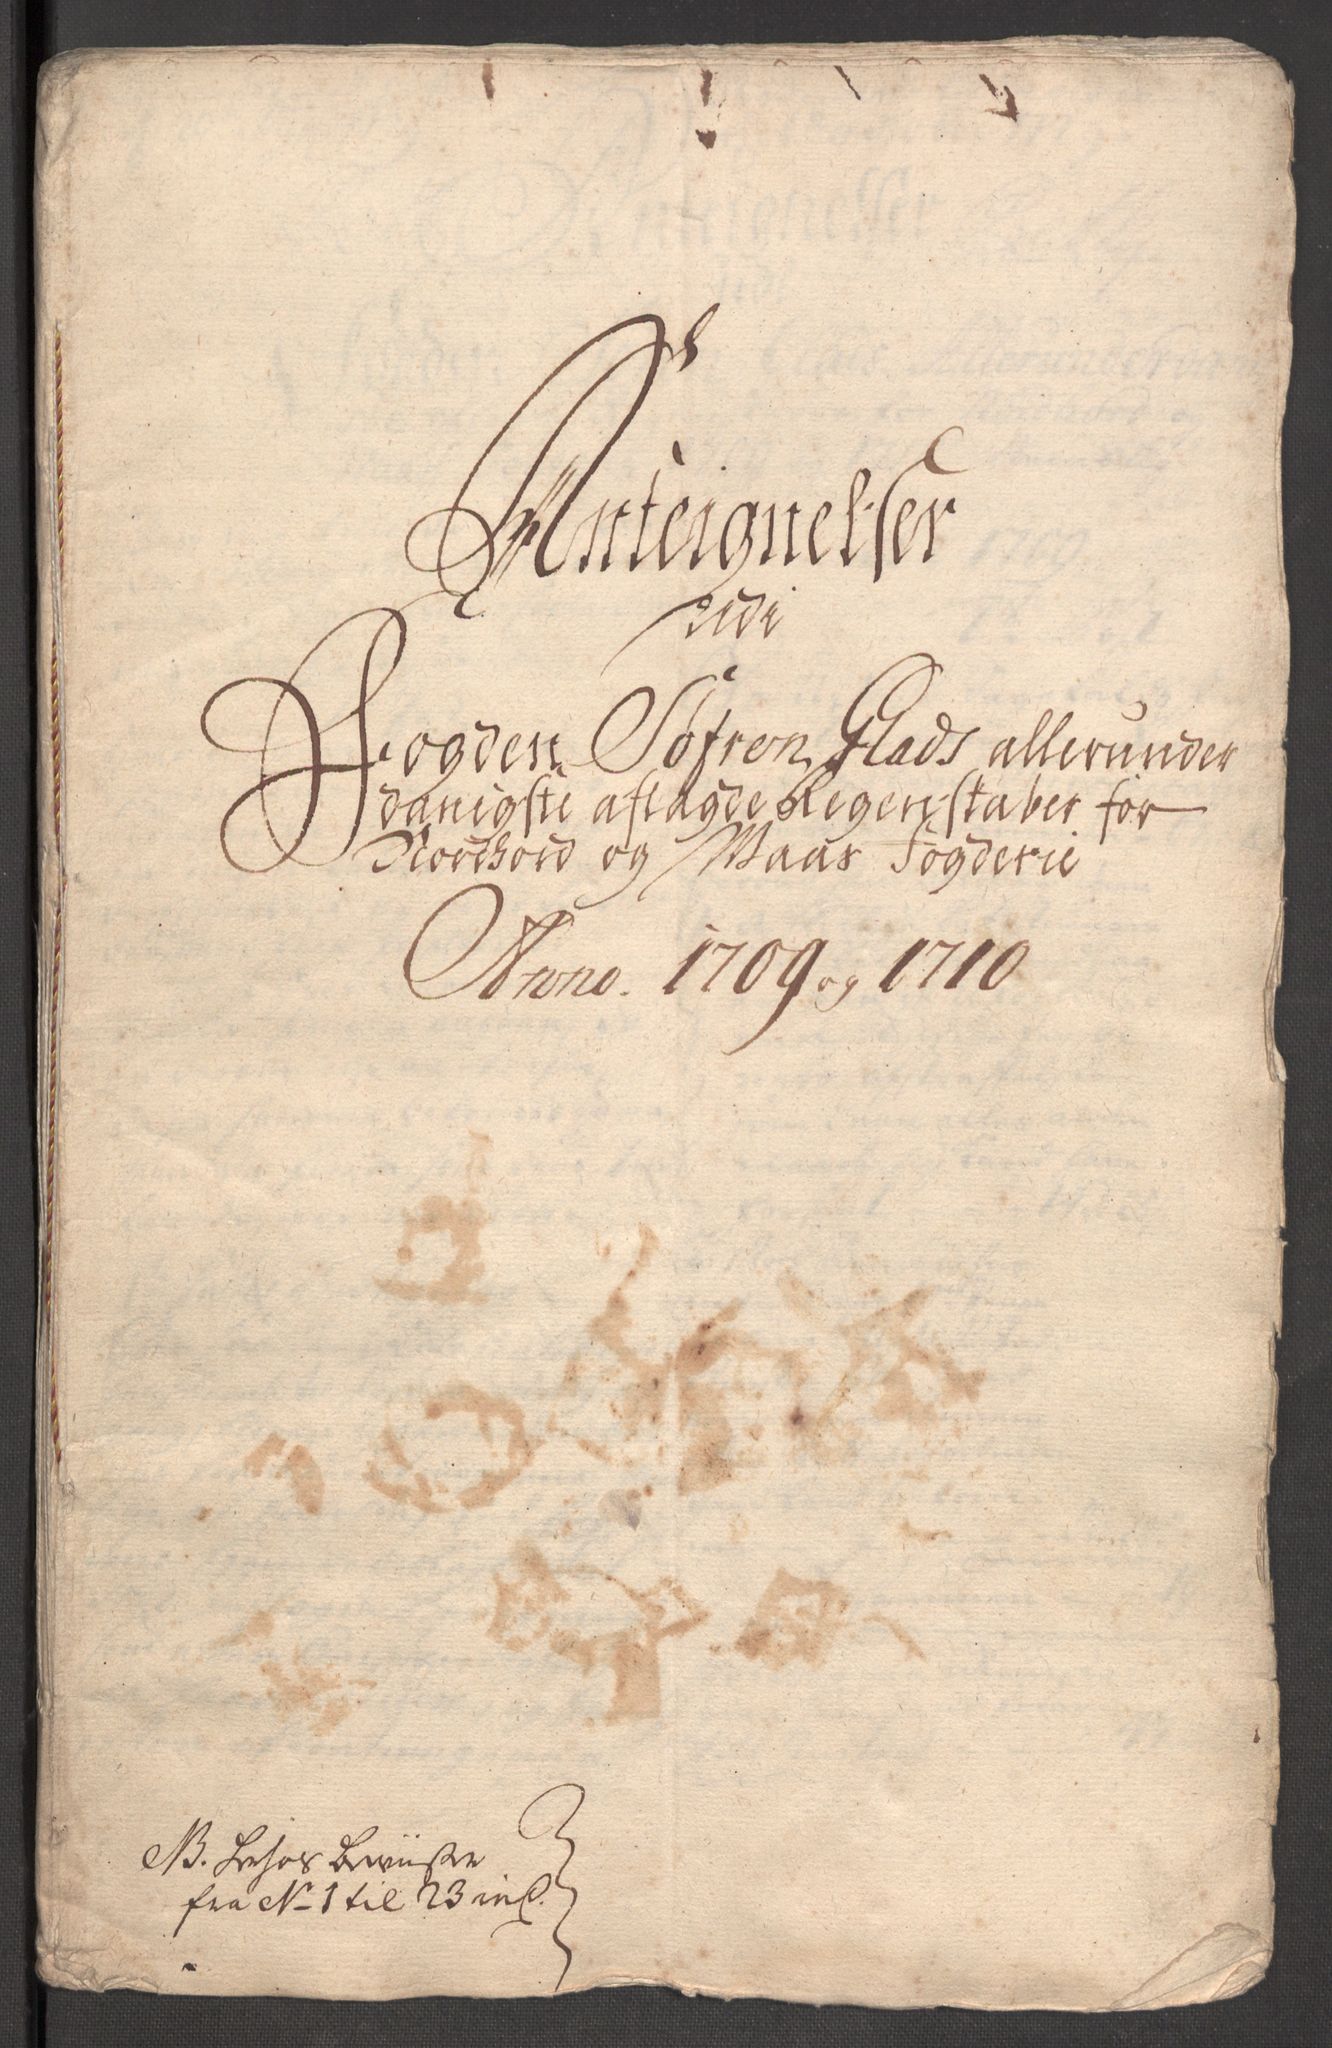 Anteignelser
udi
Fogden Søfren Glads allerunder
danigste aflagde Regenskaber for
Nordhord og Waas Fogderie
Anno. 1709 og 1710
NB. Bewiiser
fra No 1 til 23 incl.